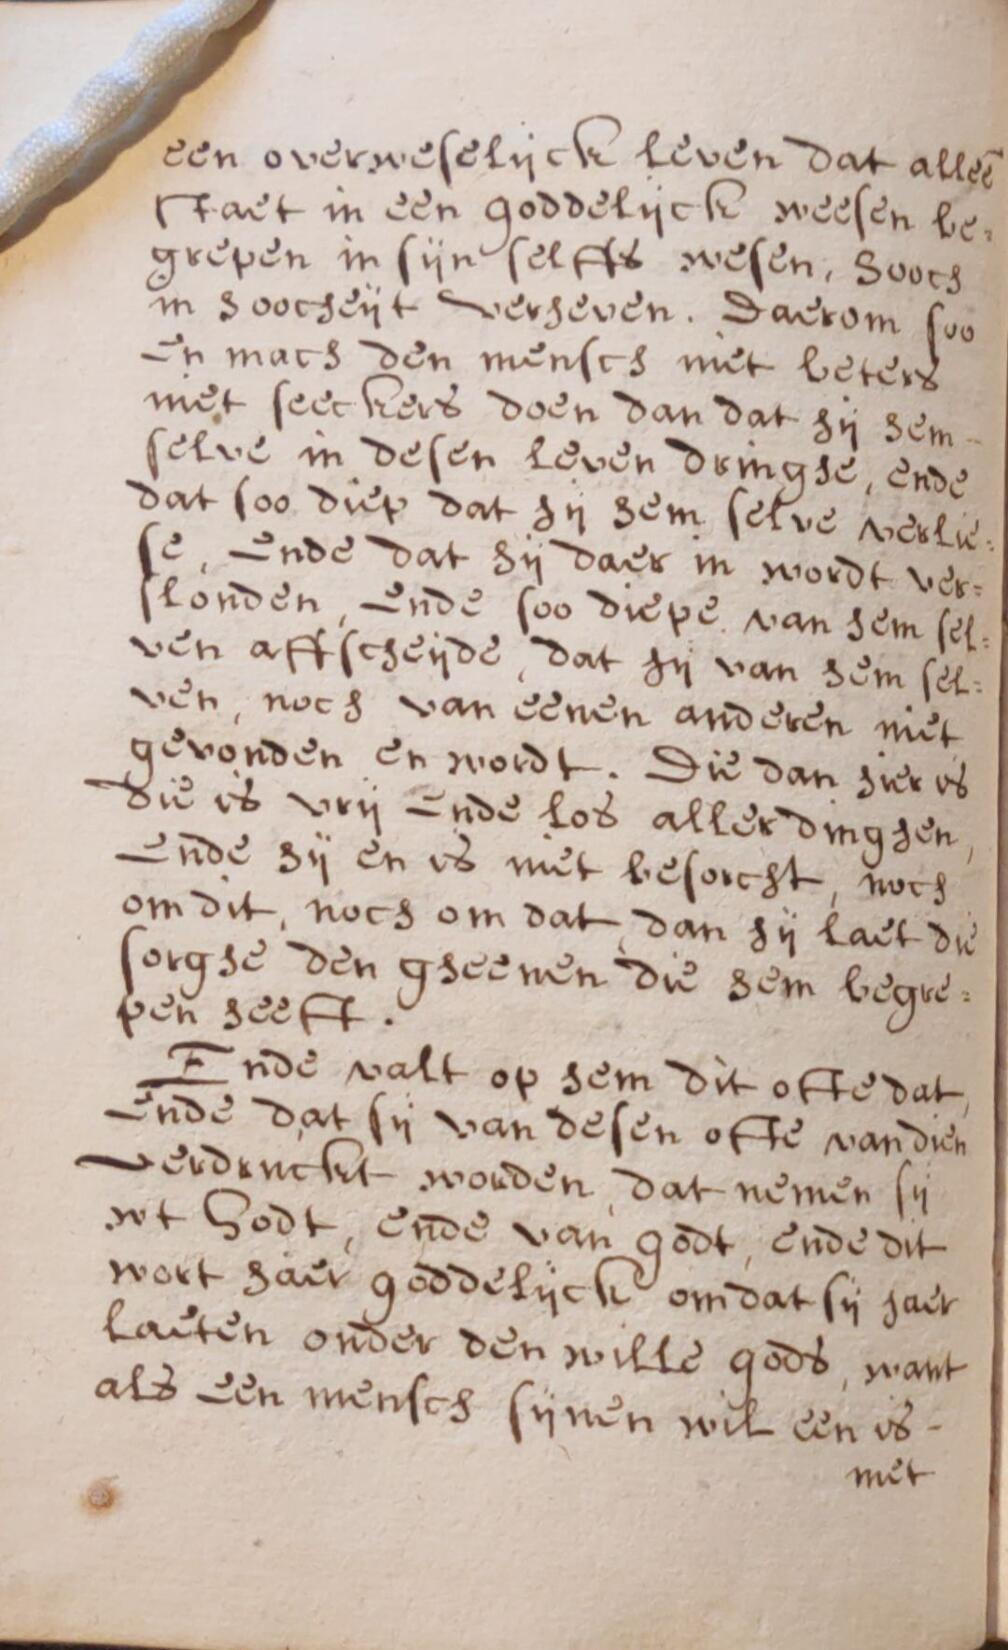 een overweselijck leven dat alleē
staet in een goddelijck weesen be-
grepen in sijn selffs wesen, hooch
in hoocheijt verheven. Daerom soo
En mach den mensch niet beters
niet seeckers doen dan dat hij hem-
selve in desen leven dringhe, ende
dat soo diep dat hij hem selve verlie-
se, Ende dat hij daer in wordt ver-
slonden, Ende soo diepe van hem sel-
ven affscheijde, dat hij van hem sel-
ven, noch van eenen anderen niet
gevonden en wordt. Die dan hier is
die is vrij Ende los aller dinghen,
Ende hij en is niet besorcht, noch
om dit, noch om dat, dan hij laet die
sorghe den gheenen die hem begre-
pen heeft.
Ende valt op hem dit ofte dat,
Ende dat sij van desen ofte van dien
Verdruckt worden, dat nemen sij
wt Godt, ende van godt, ende dit
wort haer goddelijck omdat sij haer
laeten onder den wille gods, want
als Een mensch sijnen wil een is-
met